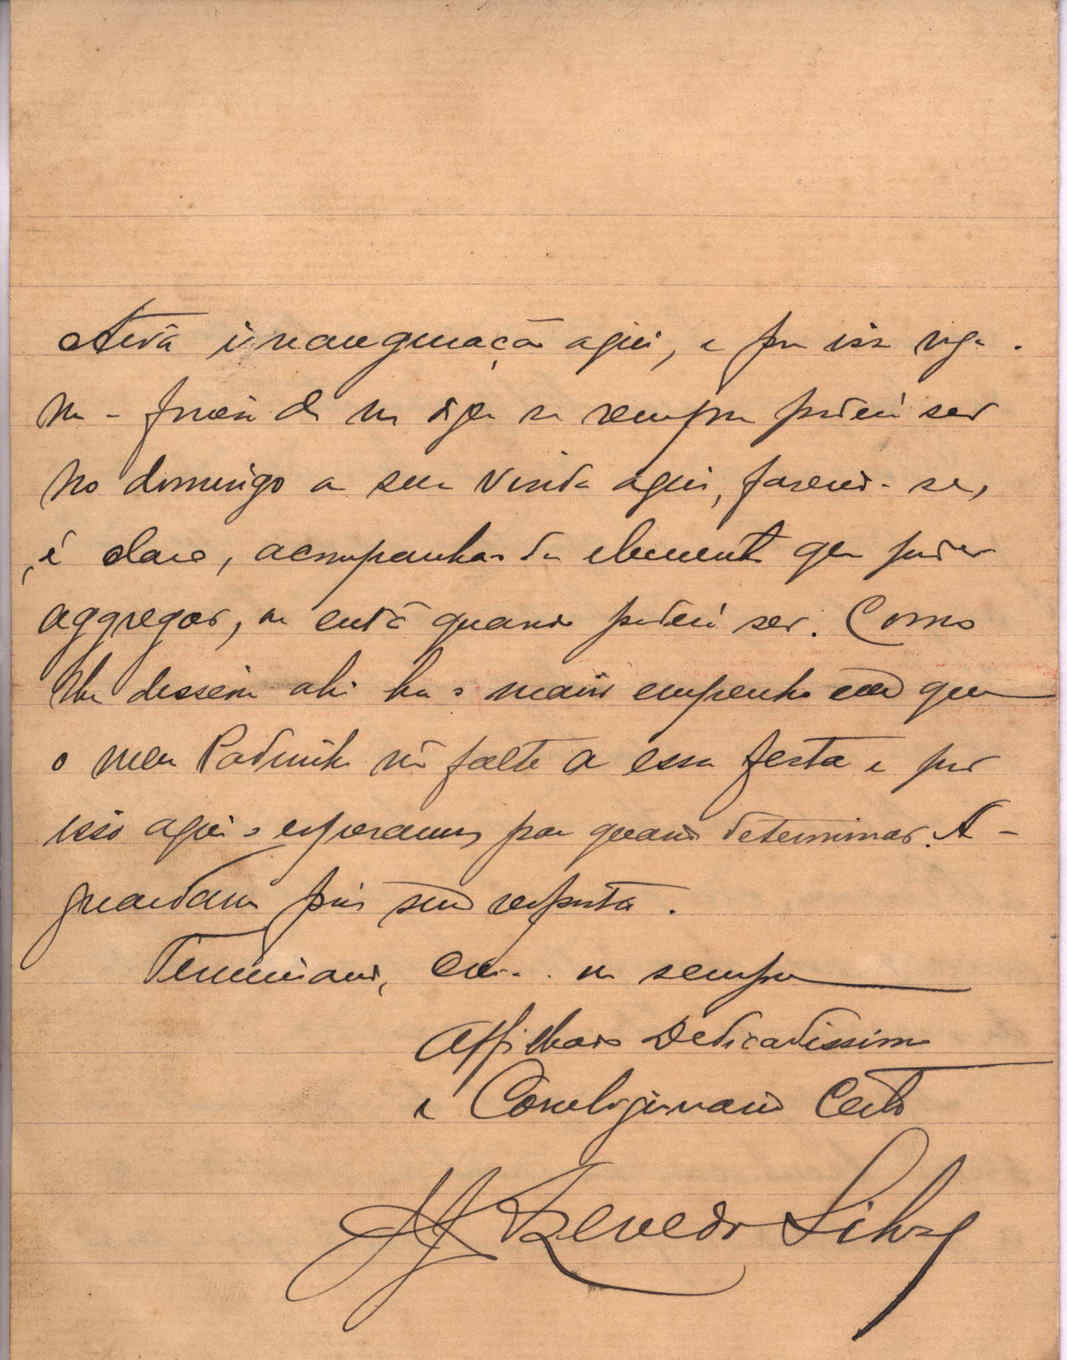 inauguração aqui, e por isso roga-
me diga se sempre poderá ser
no domingo a sua vinda aqui, fazendo-se,
é claro, acompanhar do elemento que poder
aggregar, ou então quando poderá ser. Como
lhe disse ahi ha o maior empenho em que
o meu Padrinho não falte a essa festa e por
isso aqui o esperamos para quando determinar. A-
guardam pois sua resposta.
Terminando, sempre
Affilhado Dedicadissimo
e Correligionario Certo
Azevedo Silva